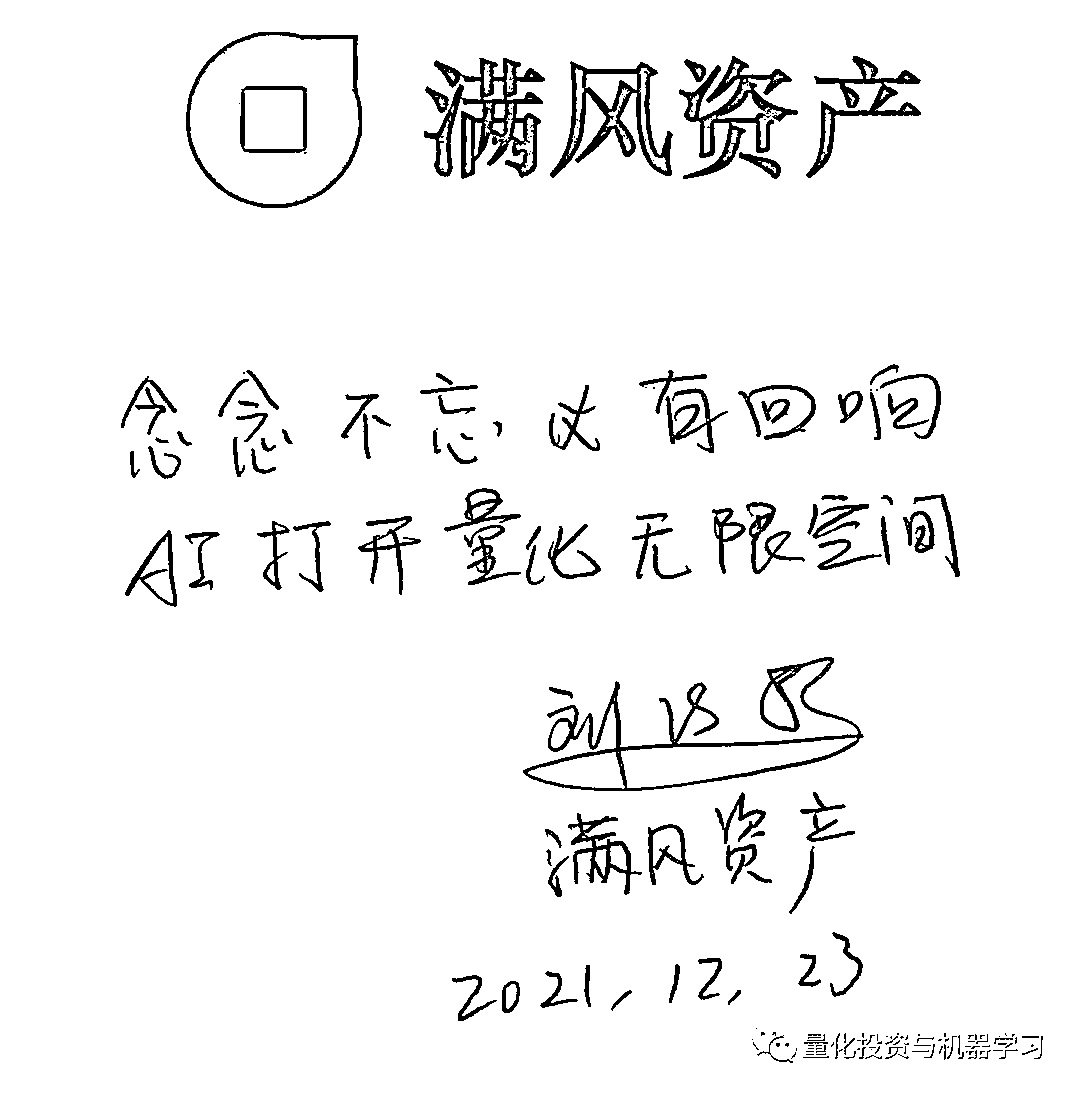 满风资产
念念不忘必有回响
AI打开量化无限空间
刘
满风资产
2021.12.23
量化投资与机器学习